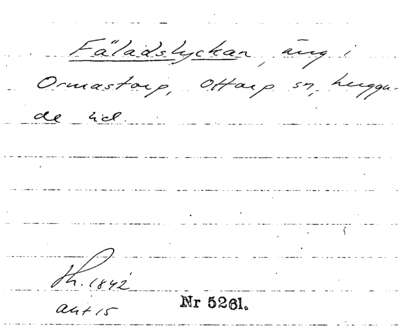 Fäladslyckan, äng i
Ormastorp, Ottarp sn, Luggu-
de hd
Th. 1842
akt 15
Nr 5261.